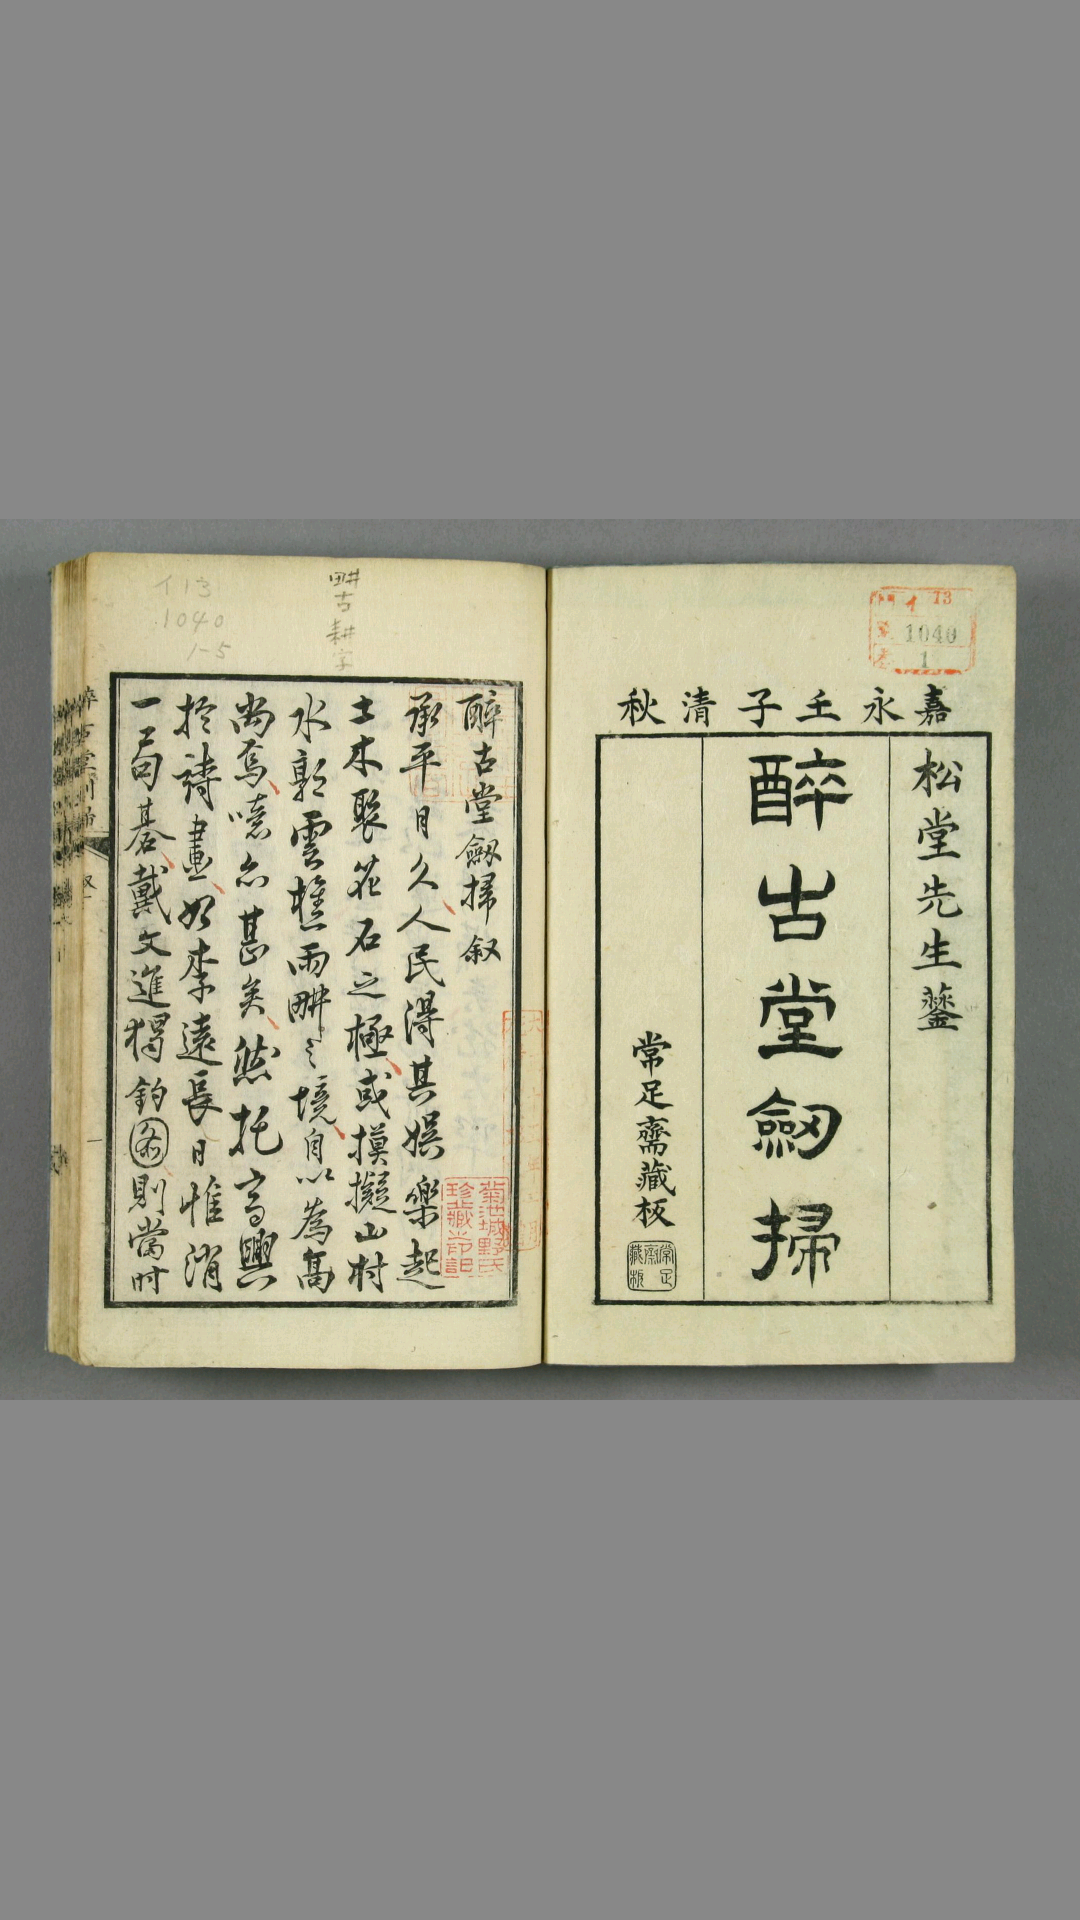 嘉永壬子清秋
松堂先生鑒
醉古堂劒掃
常足齋藏板
常足齋藏板
13
1040
1
畊古耕字
イ13
1040
1-5
醉古堂劒掃叙
承平日久人民得其娯樂起
土木聚花石之極或摸擬山村
水郭雲樵雨畊之境自以為高
尚焉噫亦甚矣然托高興
於詩畫如李遠長日惟消
一局碁戴文進獨釣圖則當时
菊池城野氏珍藏之印記